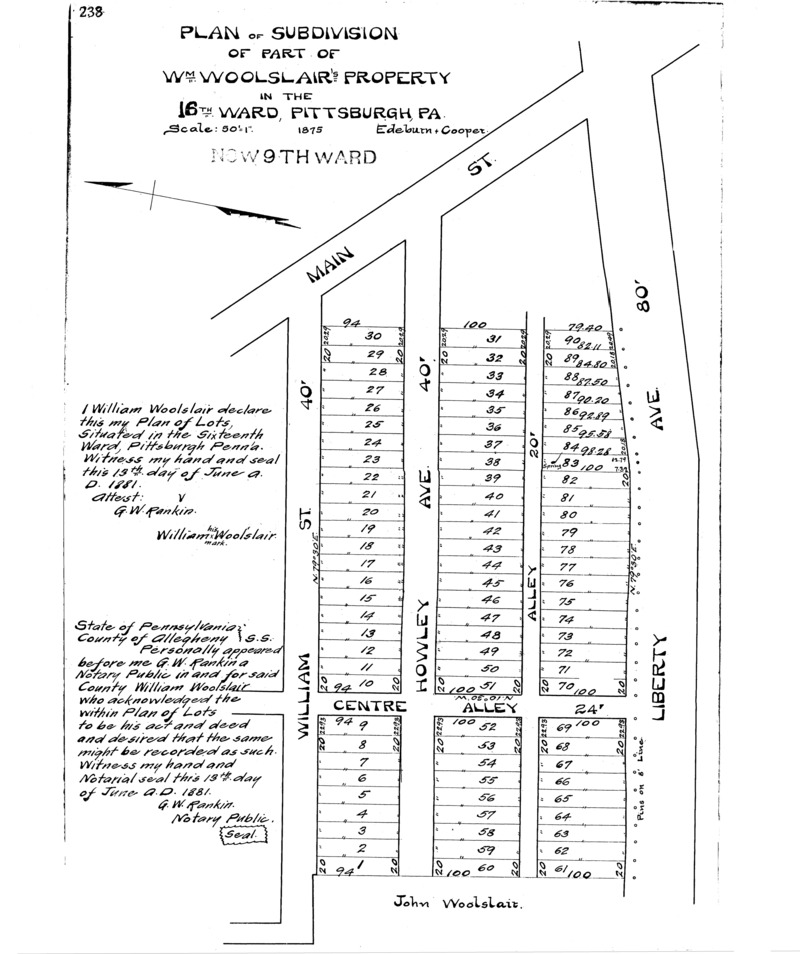 238
PLAN OF SUBDIVISION
OF PART OF
WM WOOLSLAIR'S PROPERTY
IN THE
16TH WARD, PITTSBURGH, PA.
Scale: 50'=1" 1875 Edeburn + Cooper.
NOW 9TH WARD
MAIN ST.
I William Woolslair declare
this my Plan of Lots,
Situated in the Sixteenth
Ward, Pittsburgh Penn'a.
Witness my hand and seal
this 13th day of June A.
D. 1881.
Attest:
G.W. Rankin.
William his mark Woolslair.
State of Pennsylvania
County of Allegheny } S.S.
Personally appeared
before me G.W. Rankin a
Notary Public in and for said
County William Woolslair
who acknowledged the
within Plan of Lots
to be his act and deed
and desired that the same
might be recorded as such.
Witness my hand and
Notarial seal this 13th day
of June A.D. 1881.
G.W. Rankin.
Notary Public.
Seal.
WILLIAM ST. 40'
N.79°30'E.
94
20.29 30 20.29
20 29 20
28
27
26
25
24
23
22
21
20
19
18
17
16
15
14
13
12
11
20 94 10 20
HOWLEY AVE. 40'
100
20.29 31 20.29
20 32 20
33
34
35
36
37
38
39
40
41
42
43
44
45
46
47
48
49
50
20 100 51 20
ALLEY 20'
79.40
20.29 90 82.11
20 89 84.80
88 87.50
87 90.20
86 92.89
85 95.58
84 98.28
Spring 83 100
82 20
81
80
79
78
77
76
75
74
73
72
71
20 70 100 20
LIBERTY AVE. 80'
N.79°30'E.
CENTRE ALLEY 24'
94 9
20.93 20.93
20 8 20
7
6
5
4
3
2
20 94 1 20
100 52
20.93 20.93
20 53 20
54
55
56
57
58
59
20 100 60 20
69 100
20.93 20.93
20 68 20
67
66
65
64
63
62
20 61 100 20
Pins on 8' Line.
John Woolslair.